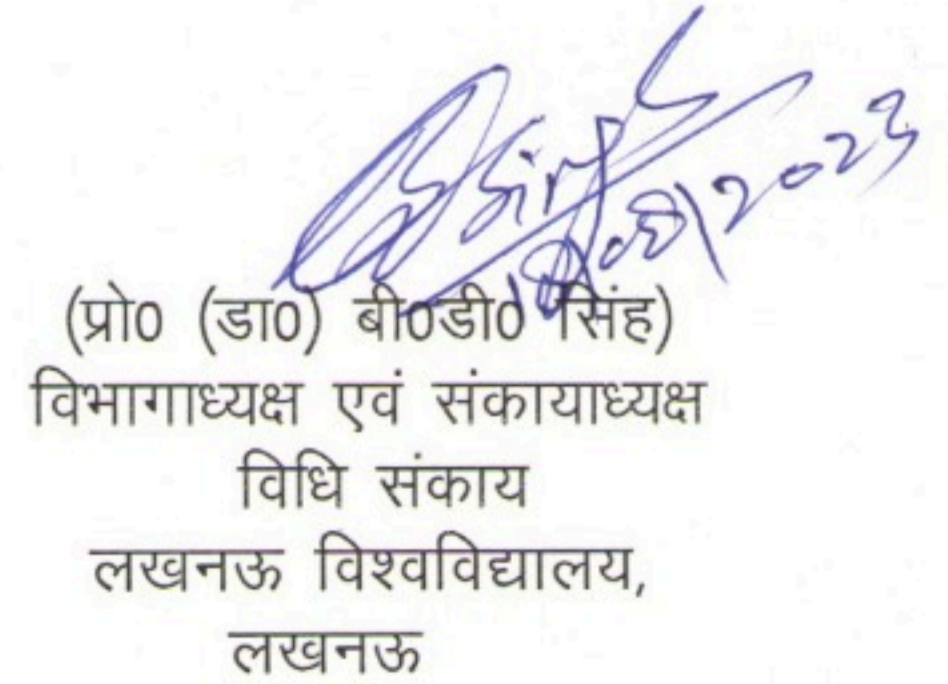 (प्रो0 (डा0) बी0डी0 सिंह)
विभागाध्यक्ष एवं संकायाध्यक्ष
विधि संकाय
लखनऊ विश्वविद्यालय,
लखनऊ